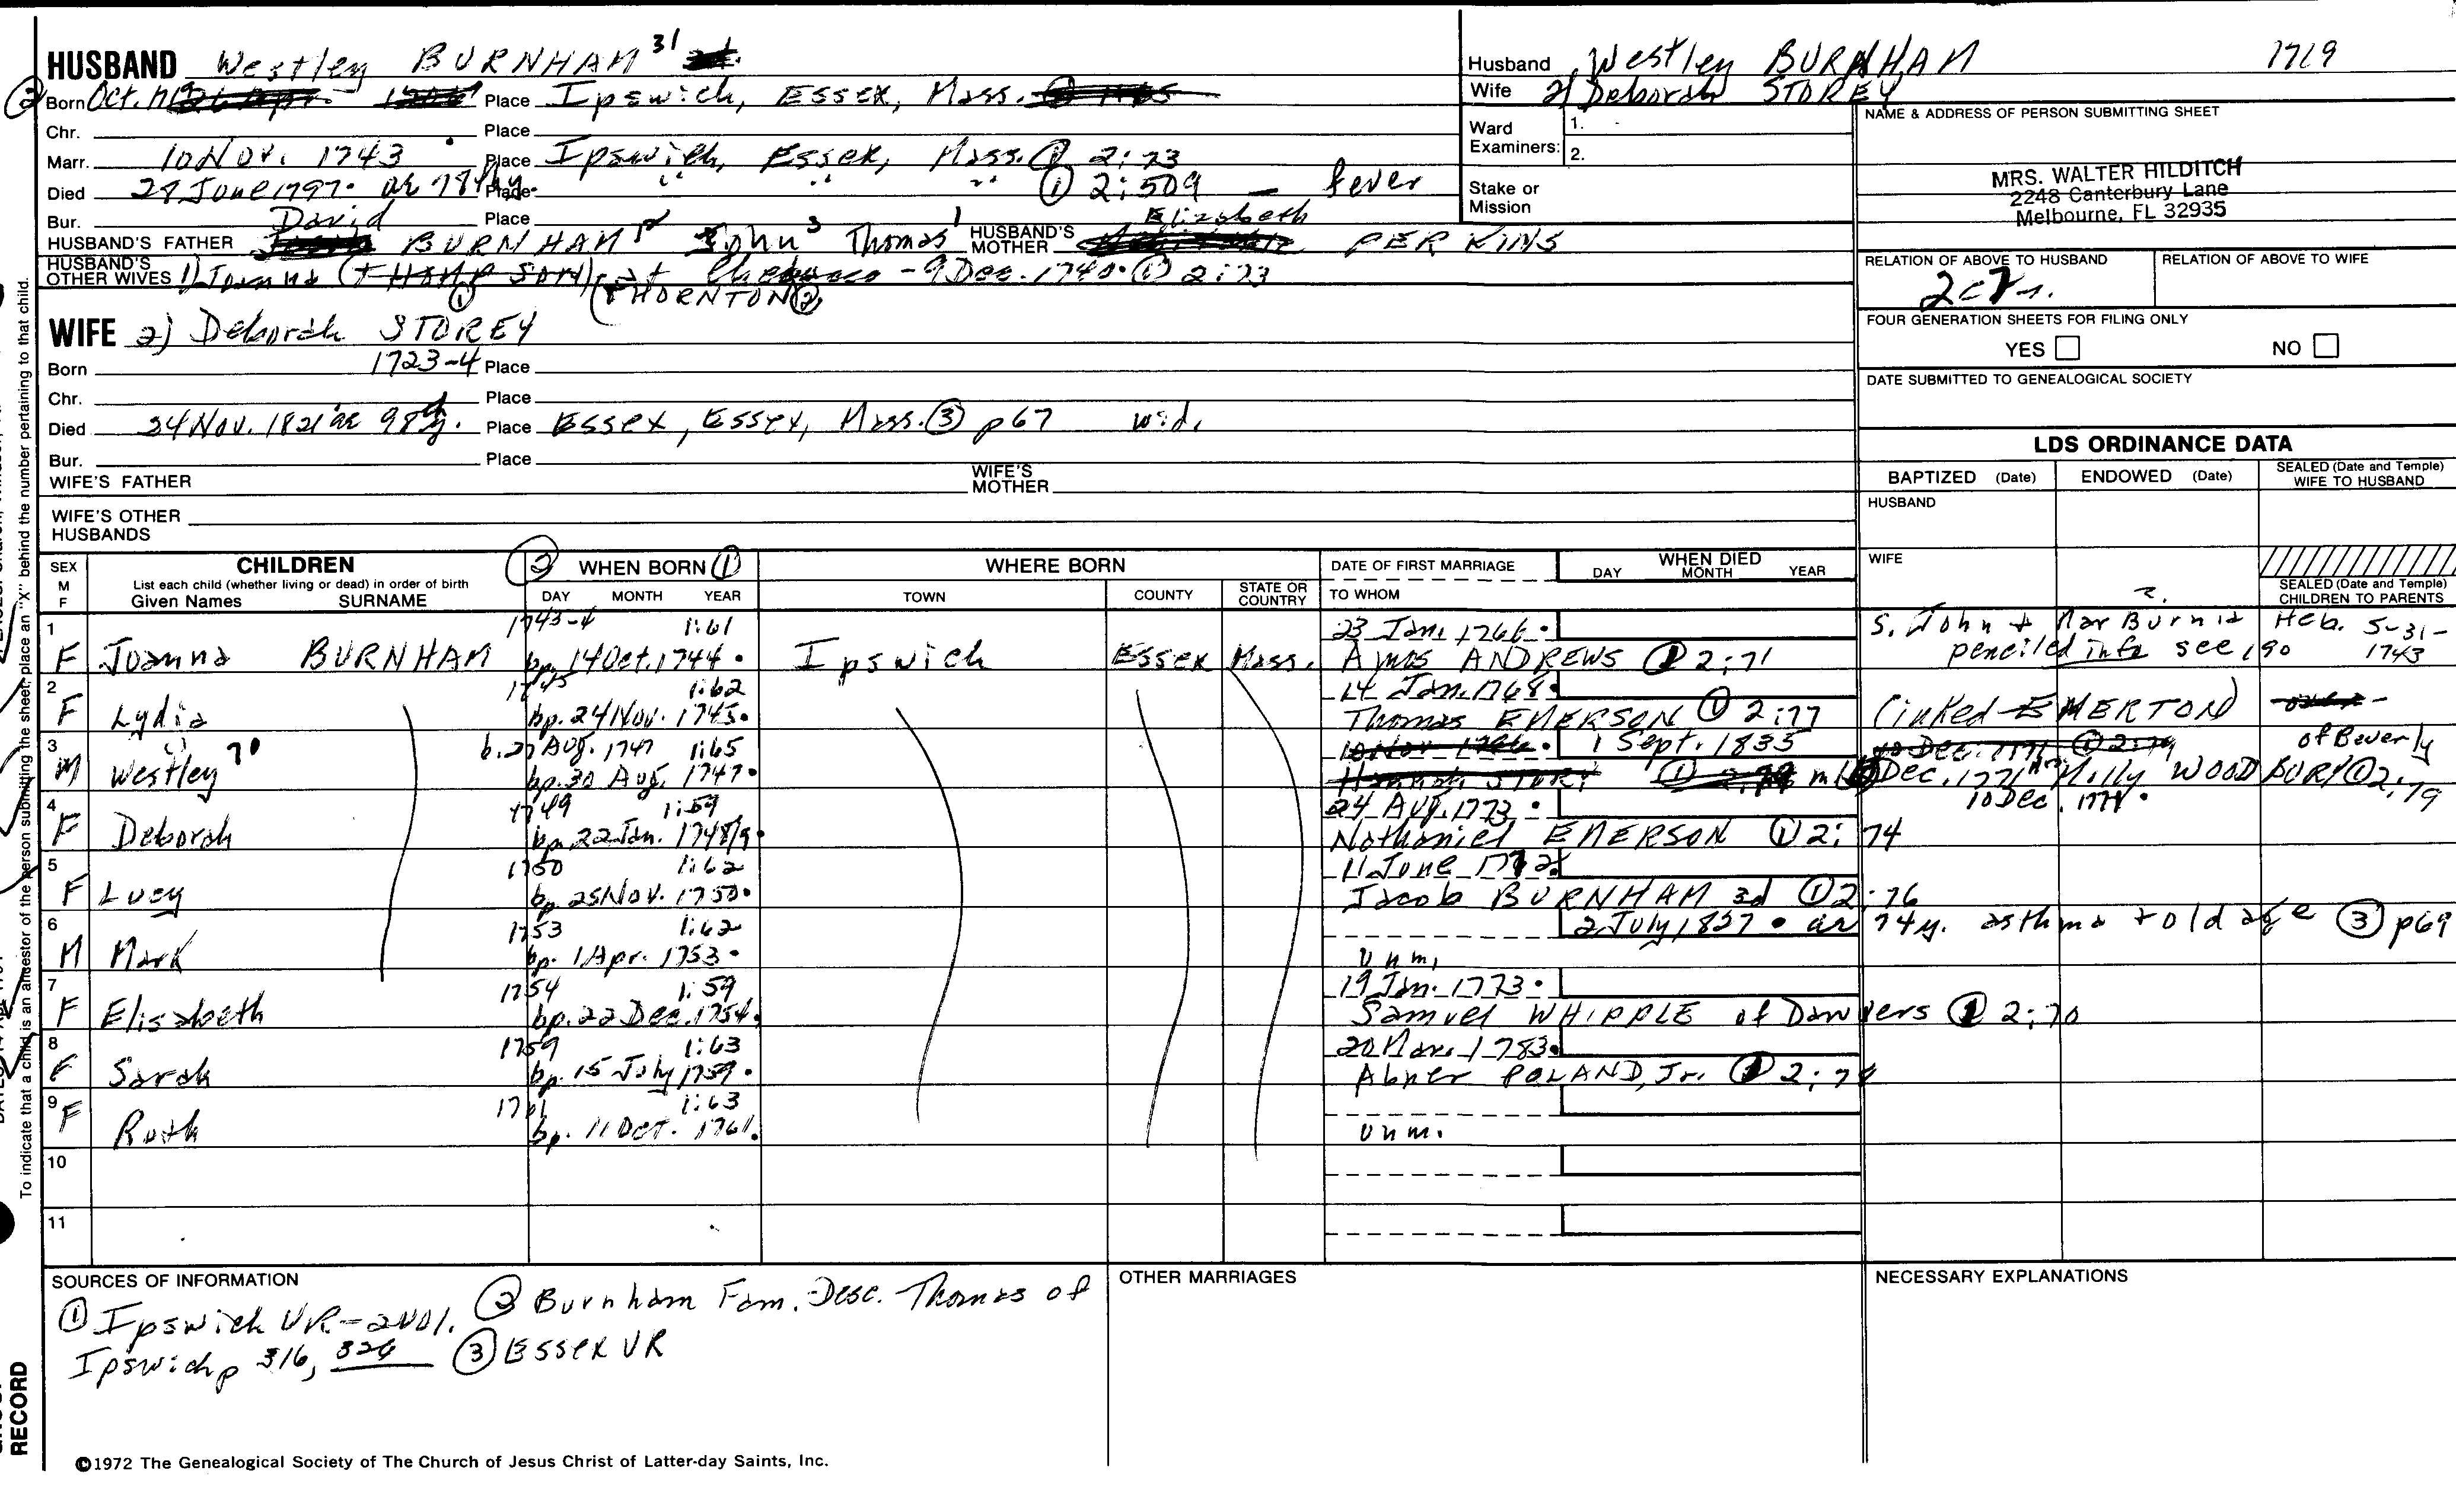 HUSBAND Westley BURNHAM 31
Husband Westley BURNHAM 1719
Wife 2) Deborah STOREY
② Born Oct. 1719 Place Ipswich, Essex, Mass.
Chr. Place
Marr. 10 Nov. 1743 Place Ipswich, Essex, Mass. ① 2:73
Died 28 June 1797. ae 78 y. Place " " " ① 2:509 — fever
Bur. Place
HUSBAND'S FATHER David BURNHAM John 3 Thomas 1 HUSBAND'S MOTHER Elizabeth PERKINS
HUSBAND'S OTHER WIVES 1) Joanna (THOMPSON) ① int Chebacco - 9 Dec. 1740. ① 2:73
(THORNTON ②)
Ward Examiners: 1.
2.
Stake or Mission
NAME & ADDRESS OF PERSON SUBMITTING SHEET
MRS. WALTER HILDITCH
2248 Canterbury Lane
Melbourne, FL 32935
RELATION OF ABOVE TO HUSBAND RELATION OF ABOVE TO WIFE
FOUR GENERATION SHEETS FOR FILING ONLY
YES NO
DATE SUBMITTED TO GENEALOGICAL SOCIETY
WIFE 2) Deborah STOREY
Born 1723-4 Place
Chr. Place
Died 24 Nov. 1821 ae 98 y. Place Essex, Essex, Mass. ③ p67 wid.
Bur. Place
WIFE'S FATHER WIFE'S MOTHER
WIFE'S OTHER HUSBANDS
LDS ORDINANCE DATA
BAPTIZED (Date) ENDOWED (Date) SEALED (Date and Temple) WIFE TO HUSBAND
HUSBAND
WIFE
SEALED (Date and Temple) CHILDREN TO PARENTS
SEX M F
CHILDREN
List each child (whether living or dead) in order of birth
Given Names SURNAME
② WHEN BORN ①
DAY MONTH YEAR
WHERE BORN
TOWN COUNTY STATE OR COUNTRY
DATE OF FIRST MARRIAGE
TO WHOM
WHEN DIED
DAY MONTH YEAR
1 1743-4 1:61 23 Jan. 1766.
F Joanna BURNHAM bp. 14 Oct. 1744. Ipswich Essex Mass. Amos ANDREWS ① 2:71
S. John + Mar Burn
Heb. 5-31-1743
penciled info see 190
2 1745 1:62 14 Jan. 1768.
F Lydia bp. 24 Nov. 1745. Thomas EMERSON ① 2:77 (inked EMERTON)
3 b. 27 Aug. 1747 1:65 10 Nov 1766. 1 Sept. 1835 10 Dec. 1771 ① 2:79 of Beverly
M Westley 70 bp. 30 Aug. 1747. Hannah STORY ① Dec. 1771 Molly WOODBURY ① 2:79
10 Dec. 1771.
4 1749 1:59 24 Aug. 1773.
F Deborah bp. 22 Jan. 1748/9. Nathaniel EMERSON ① 2:74
5 1750 1:62 11 June
F Lucy bp. 25 Nov. 1750. Jacob BURNHAM 3d ① 2:76
6 1753 1:62 2 July 1827. ae 74 y. asthma + old age ③ p69
M Mark bp. 1 Apr. 1753. unm.
7 1754 1:59 19 Jan. 1773.
F Elisabeth bp. 22 Dec. 1754. Samuel WHIPPLE of Danvers ① 2:70
8 1759 1:63 20 Mar. 1783.
F Sarah bp. 15 July 1759. Abner POLAND, Jr. ① 2:79
9 1761 1:63
F Ruth bp. 11 Oct. 1761. unm.
10
11
SOURCES OF INFORMATION
① Ipswich VR-2 vol. ② Burnham Fam. Desc. Thomas of
Ipswich p 316, 326 ③ Essex VR
OTHER MARRIAGES
NECESSARY EXPLANATIONS
©1972 The Genealogical Society of The Church of Jesus Christ of Latter-day Saints, Inc.
To indicate that a child is an ancestor of the person submitting the sheet, place an "X" behind the number pertaining to that child.
RECORD